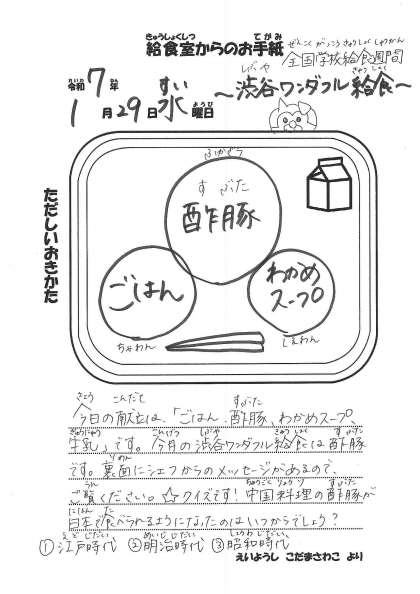 給食室からのお手紙
全国学校給食週間
令和7年
1月29日水曜日
～渋谷ワンダフル給食～
ただしいおきかた
ふかざら
すぶた
酢豚
ごはん
わかめ
スープ
ちゃわん
しるわん
今日の献立は、「ごはん、酢豚、わかめスープ、
牛乳」です。今月の渋谷ワンダフル給食は酢豚
です。裏面にシェフからのメッセージがあるので、
ご覧ください。☆クイズです!中国料理の酢豚が
日本で食べられるようになったのはいつからでしょう?
①江戸時代 ②明治時代 ③昭和時代
えいようし こだまさわこ より